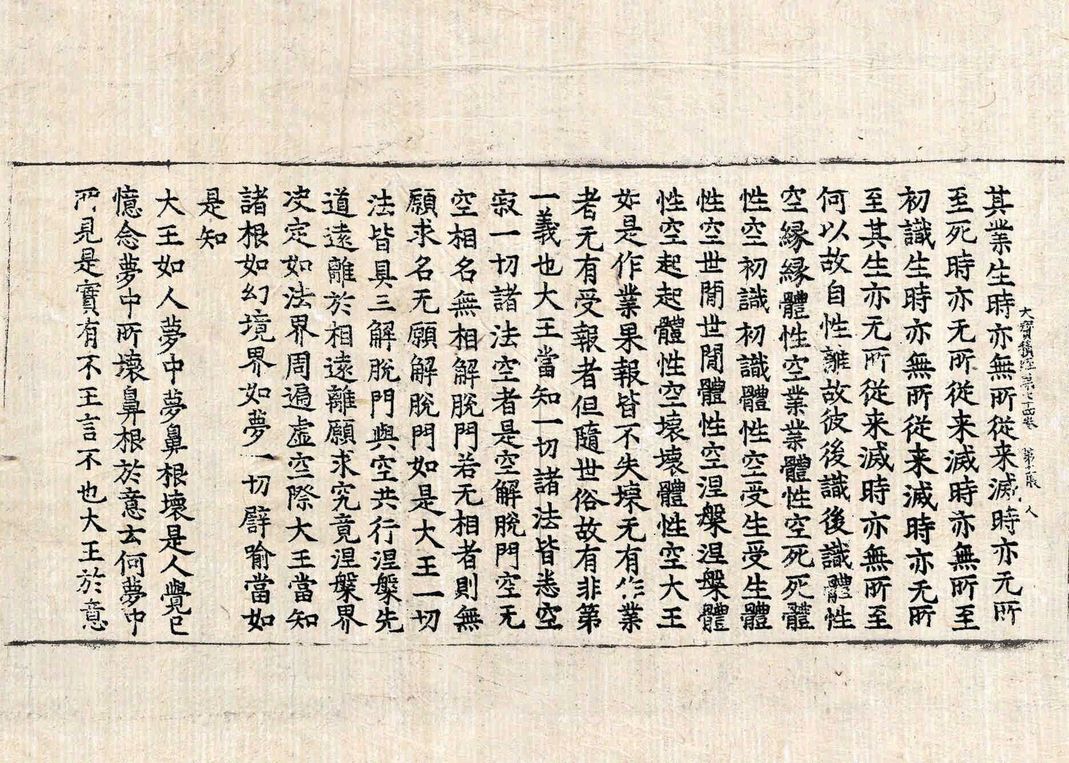 大寳積經第七十四卷 第十二張 人
其業生時亦無所從来滅時亦无所
至死時亦无所從来滅時亦無所至
初識生時亦無所從来滅時亦无所
至其生亦无所從来滅時亦無所至
何以故自性離故彼後識後識體性
空縁縁體性空業業體性空死死體
性空初識初識體性空受生受生體
性空世閒世閒體性空涅槃涅槃體
性空起起體性空壊壊體性空大王
如是作業果報皆不失壊无有作業
者无有受報者但隨世俗故有非第
一義也大王當知一切諸法皆悉空
寂一切諸法空者是空解脫門空无
空相名無相解脫門若无相者則無
願求名无願解脫門如是大王一切
法皆具三解脫門與空共行涅槃先
道遠離於相遠離願求究竟涅槃界
决定如法界周遍虚空際大王當知
諸根如幻境界如夢一切譬喻當如
是知
大王如人夢中夢鼻根壊是人覺已
憶念夢中所壊鼻根於意云何夢中
所見是實有不王言不也大王於意